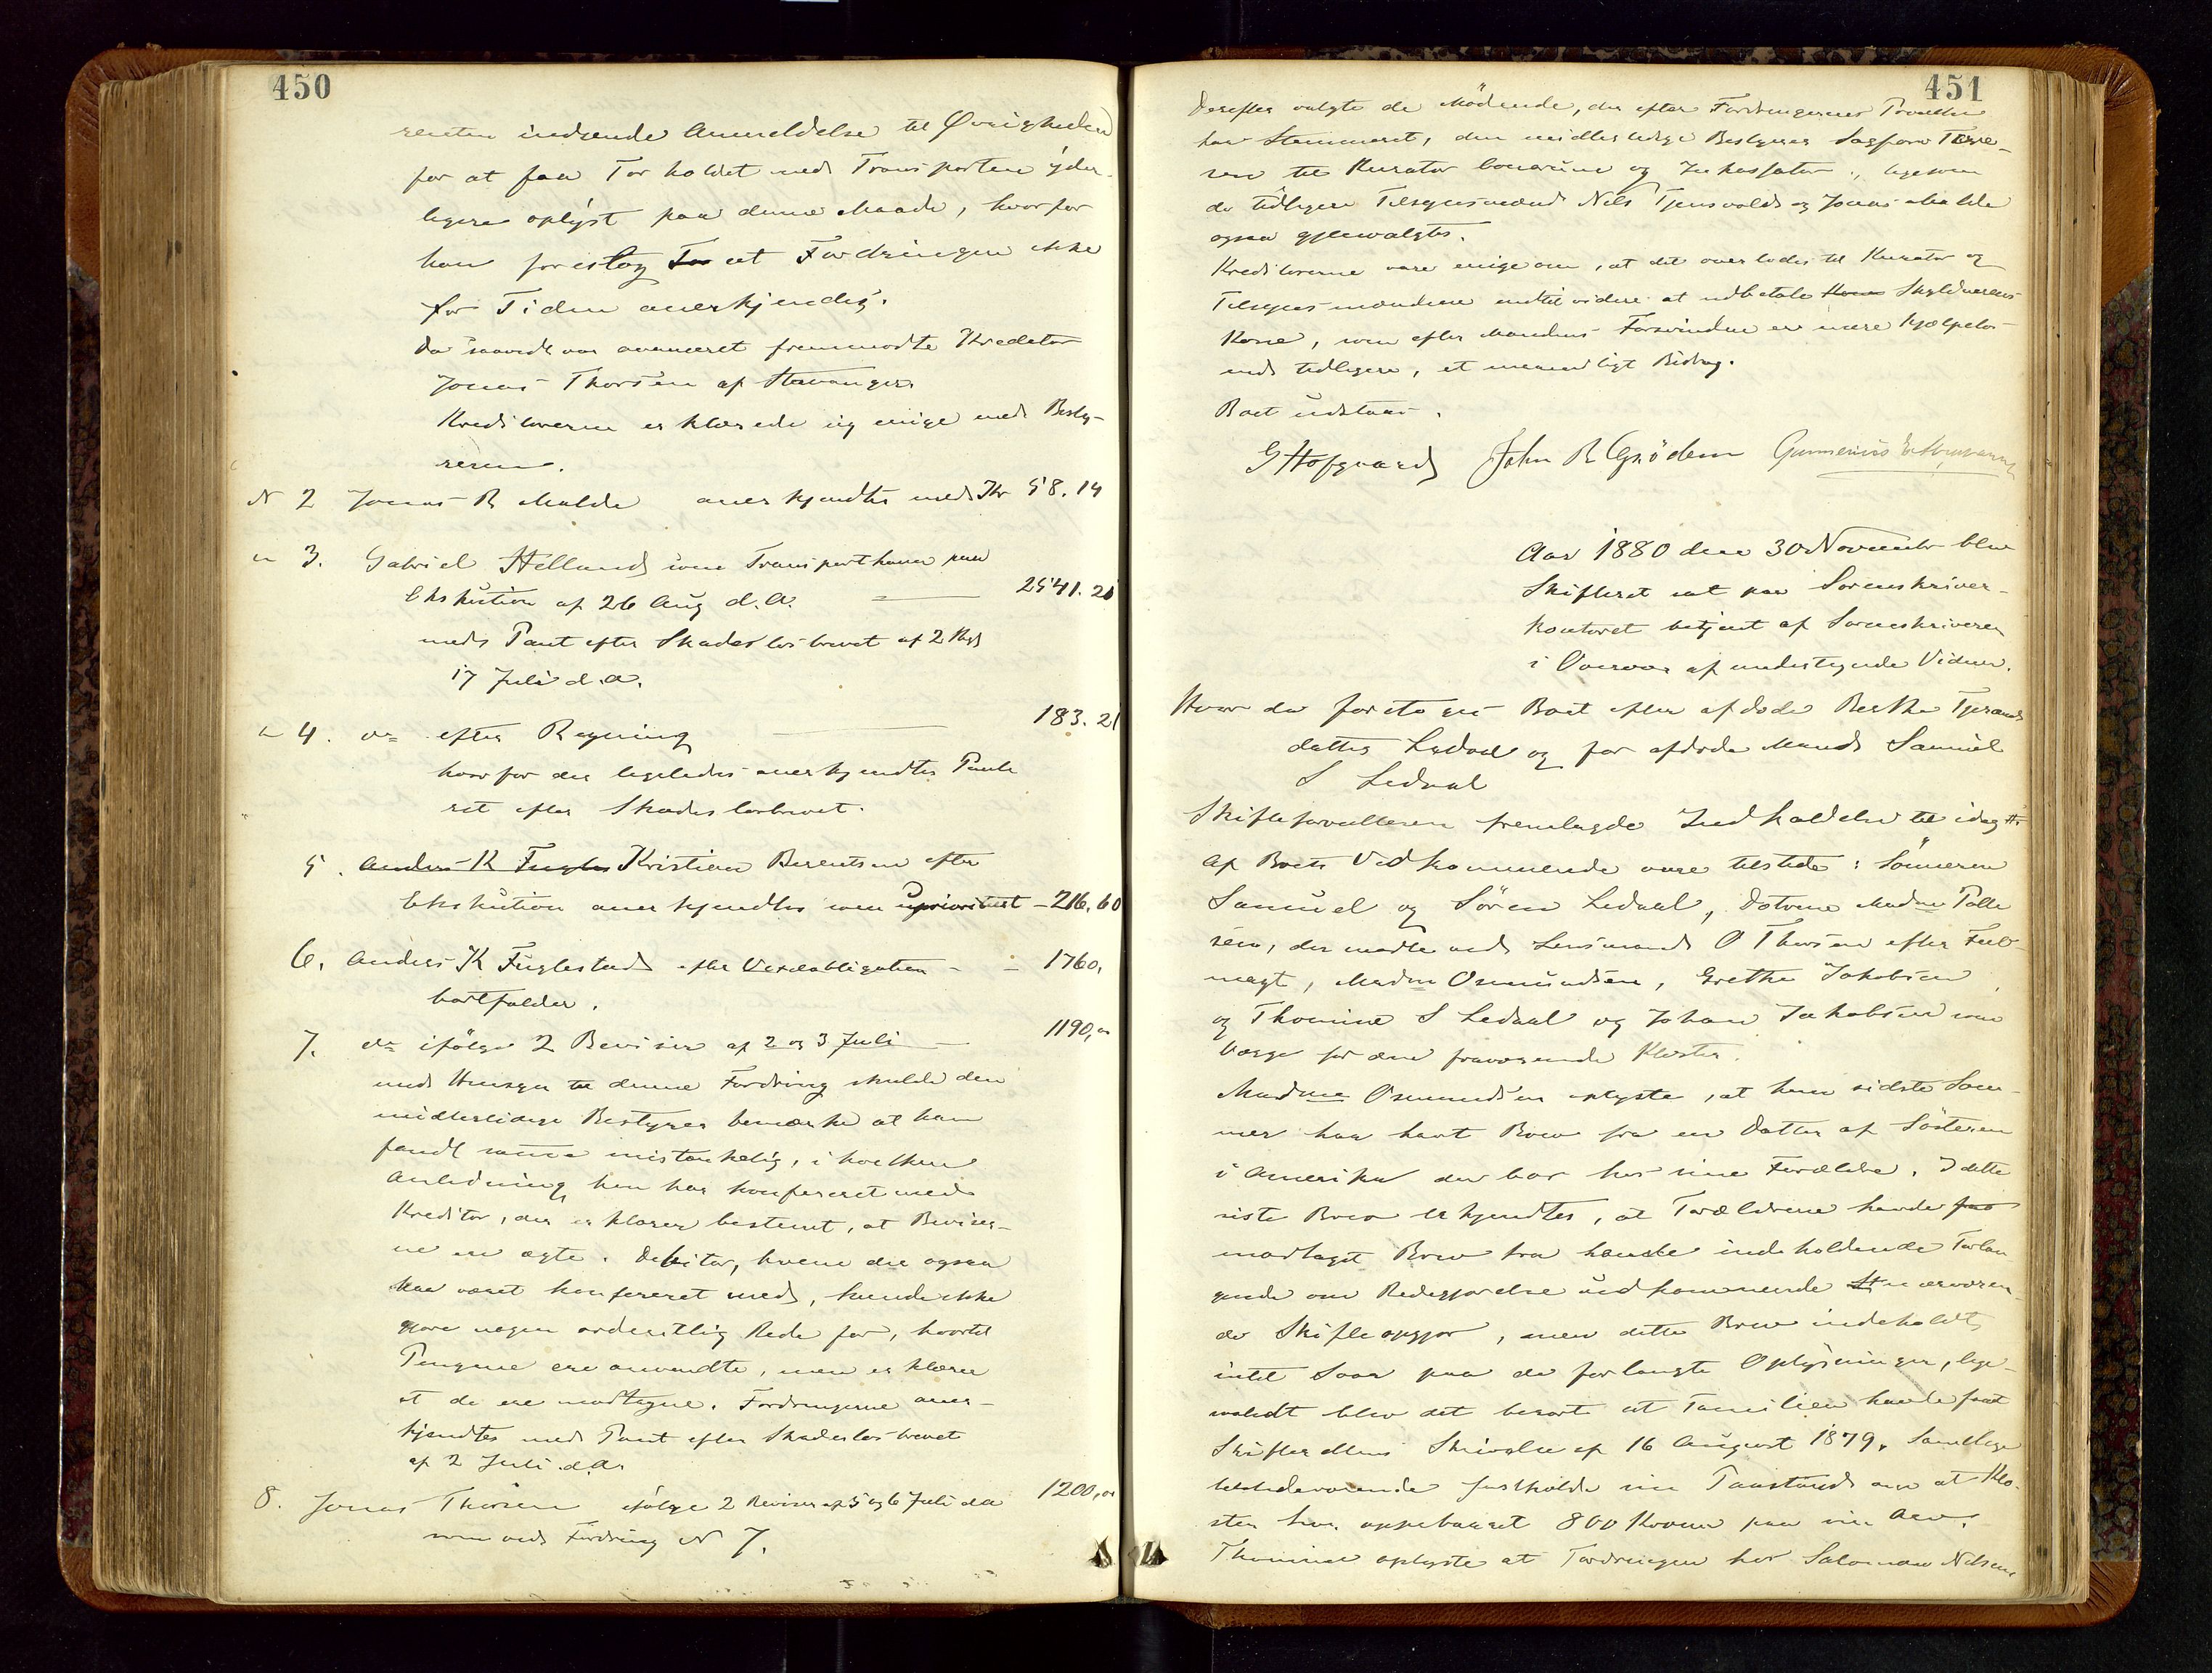 450
renten indsende Anmeldelse til Øvrigheden
for at faa Forholdet med Transporten yder-
ligere oplyst paa denne Maade, hvorfor
han foreslog at Fordringen ikke
for Tiden anerkjendes.
Da saavidt var avanceret fremmødte Kreditor
Jonas Thorsen af Stavanger.
Kreditorerne erklærede sig enige med Besty-
reren.
N 2 Jonas R Malde anerkjendtes med Kr 58.14
" 3. Gabriel Helland som Transporthaver paa
Ekskution af 26 Aug d.A. 2541.21
med Pant efter Skadesløsbrevet af 2
17 Juli d.a.
" 4. do efter Regning 183.21
hvorfor der ligeledes anerkjendtes Pante
ret efter Skadesløsbrevet.
5. Anders K Fugles Kristian Berentsen efter
Ekskution anerkjendtes som uprioritert - 216.60
6. Anders K Fuglestad efter Vexelobligation - - 1760,
bortfalder.
7. do ifølge 2 Beviser af 2 og 3 Juli - 1190,00
med Hensyn til denne Fordring skulde den
midlertidige Bestyrer bemærke at han
fandt samme mistænkelig, i hvilken
Anledning han har konfereret med
Kreditor, der erklærer bestemt, at Beviser-
ne ere ægte. Debitor, hvem der ogsaa
har været konfereret med, kunde ikke
gjøre nogen ordentlig Rede for, hvortil
Pengene ere anvendte, men erklærer
at de ere modtagne. Fordringerne aner-
kjendtes med Pant efter Skadesløsbrevet
af 2 Juli d.A.
8. Jonas Thorsen ifølge 2 Beviser af 5 og 6 Juli da 1200,00
som ved Fordring N 7.
451
Derefter valgte de Mødende, der efter Fordringernes
har Stemmeret, den midlertidige Bestyrer Sagfører
sen til Kurator bonorum og Inkassator, ligesom
de tidligere Tilsynsmænd Nils Tjensvold og Jonas Malde
ogsaa gjenvalgtes.
Kreditorerne vare enige om, at det overlodes til Kurator og
Tilsynsmændene indtil videre at udbetale Skyldnerens
Kone, som efter Mandens Forsvinden er mere hjælpeløs
end tidligere, et maanedligt Bidrag.
Boet udstaar.
G Hofgaard John R Grødem Gunnerius
Aar 1880 den 30 November blev
Skifteret sat paa Sorenskriver-
kontoret betjent af Sorenskriveren
i Overvær af undertegnede Vidner.
Hvor da foretoges Boet efter afdøde Berthe Tjerands
datter Ledaal og før afdøde Mand Samuel
S Ledaal
Skifteforvalteren fremlagde Indkaldelse til idag
Af Boets Vedkommende vare tilstede: Sønnerne
Samuel og Søren Ledaal, Døtrene Madme Polle
sen, der mødte ved Lensmand O Thorsen efter Fuld-
magt, Madme Osmundsen, Grethe Jakobsen
og Thomine S Ledaal og Johan Jakobsen som
Værge for den fraværende Kloster.
Madme Osmundsen oplyste, at hun sidste Som-
mer har havt Brev fra en Datter af Søsteren
i Amerika der bor hos sine Forældre. I dette
siste Brev erkjendtes, at Forældrene havde
modtaget Brev fra hende indeholdende Forlan
gende om Redegjørelse vedkommende nærværen-
de Skifteopgjør, men dette Brev indeholdt
intet Svar paa de forlangte Oplysninger, lige-
saalidt blev det besvart at Familien havde faaet
Skifterettens Skrivelse af 16 August 1879. Samtlige
tilstedeværende fastholdt sin Paastand om at Klo-
ster har oppebaaret 800 Kroner paa sin Arv.
Thomine oplyste at Fordringen hos Salomon Nilsen